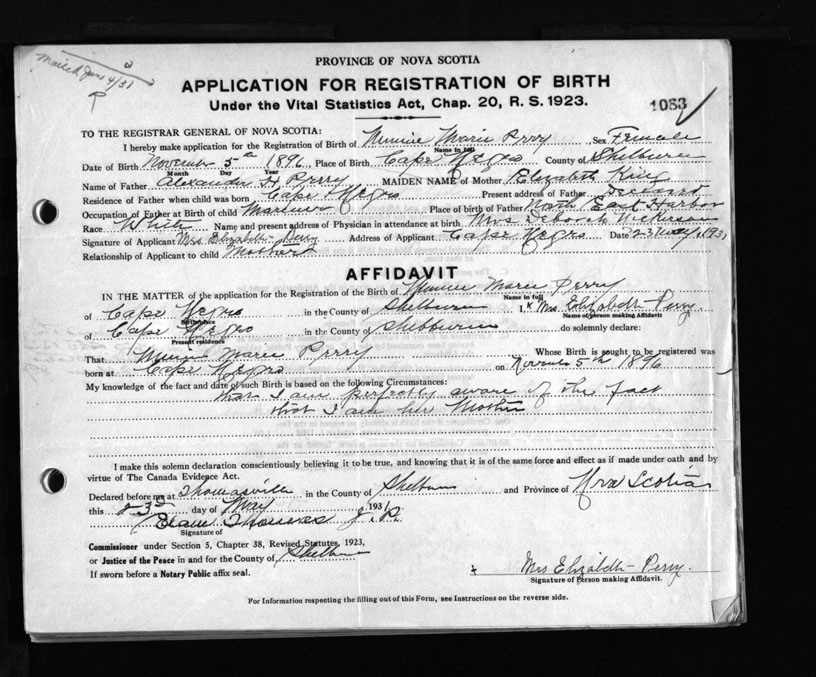 Mailed June 4/31
PROVINCE OF NOVA SCOTIA
APPLICATION FOR REGISTRATION OF BIRTH
Under the Vital Statistics Act, Chap. 20, R. S. 1923.
1083
TO THE REGISTRAR GENERAL OF NOVA SCOTIA:
I hereby make application for the Registration of Birth of Minnie Marie Perry Sex Female
Name in full
Date of Birth November 5th 1896 Place of Birth Cape Negro County of Shelburne
Month Day Year
Name of Father Alexander H Perry MAIDEN NAME of Mother Elizabeth King
Residence of Father when child was born Cape Negro Present address of Father Deceased
Occupation of Father at Birth of child Mariner Place of birth of Father North East Harbor
Race White Name and present address of Physician in attendance at birth Mrs Deborah Nickerson
Signature of Applicant Mrs Elizabeth Perry Address of Applicant Cape Negro Date 23 May, 1931
Relationship of Applicant to child Mother
AFFIDAVIT
IN THE MATTER of the application for the Registration of the Birth of Minnie Marie Perry
Name in full
of Cape Negro in the County of Shelburne I, x Mrs Elizabeth Perry
Birthplace
Name of person making Affidavit
of Cape Negro in the County of Shelburne do solemnly declare:
Present residence
That Minnie Marie Perry Whose Birth is sought to be registered was
born at Cape Negro on November 5th 1896
My knowledge of the fact and date of such Birth is based on the following Circumstances:
that I am perfectly aware of the fact
that I am her Mother
I make this solemn declaration conscientiously believing it to be true, and knowing that it is of the same force and effect as if made under oath and by
virtue of The Canada Evidence Act.
Declared before me at Thomasville in the County of Shelburne and Province of Nova Scotia
this 23rd day of May 1931
Thomas J. P.
Signature of
Commissioner under Section 5, Chapter 38, Revised Statutes, 1923,
or Justice of the Peace in and for the County of Shelburne
If sworn before a Notary Public affix seal.
x Mrs Elizabeth Perry.
Signature of Person making Affidavit.
For Information respecting the filling out of this Form, see Instructions on the reverse side.